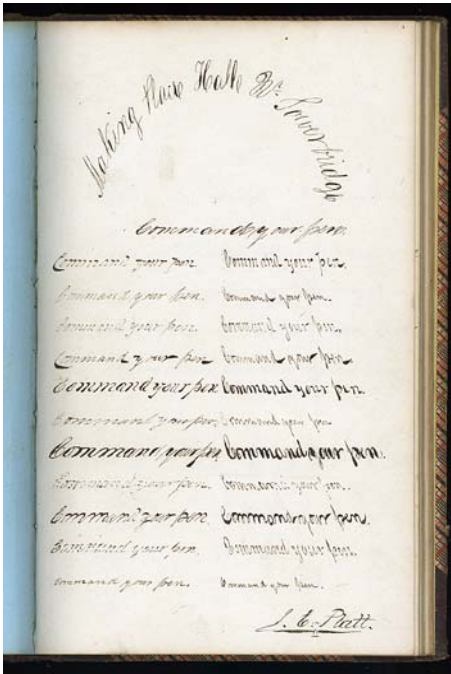 Making Place Hall Nr. Sowerbridge
Command your pen.
Command your pen Command your pen.
Command your pen. Command your pen.
Command your pen. Command your pen.
Command your pen Command your pen.
Command your pen Command your pen.
Command your pen Command your pen
Command your pen, Command your pen.
Command your pen. Command your pen.
Command your pen. Command your pen.
Command your pen. Command your pen.
command your pen. Command your pen.
J. E. Platt.